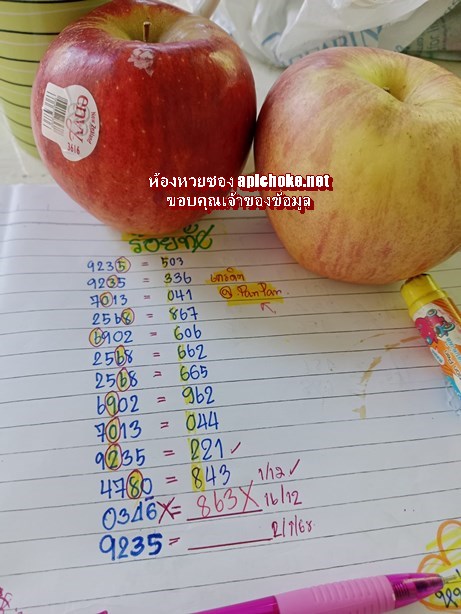 envy
3616
ห้องหวยซอง apichoke.net
ขอบคุณเจ้าของข้อมูล
ร้อยทัช
9235 = 503
9235 = 336
เครดิต
@ PanPan
7013 = 041
2568 = 867
6902 = 606
2568 = 662
2568 = 665
6902 = 962
7013 = 044
9235 = 221 ✓
4780 = 843 1/12 ✓
0346 X = 863 X 16/12
9235 = 2/1/68